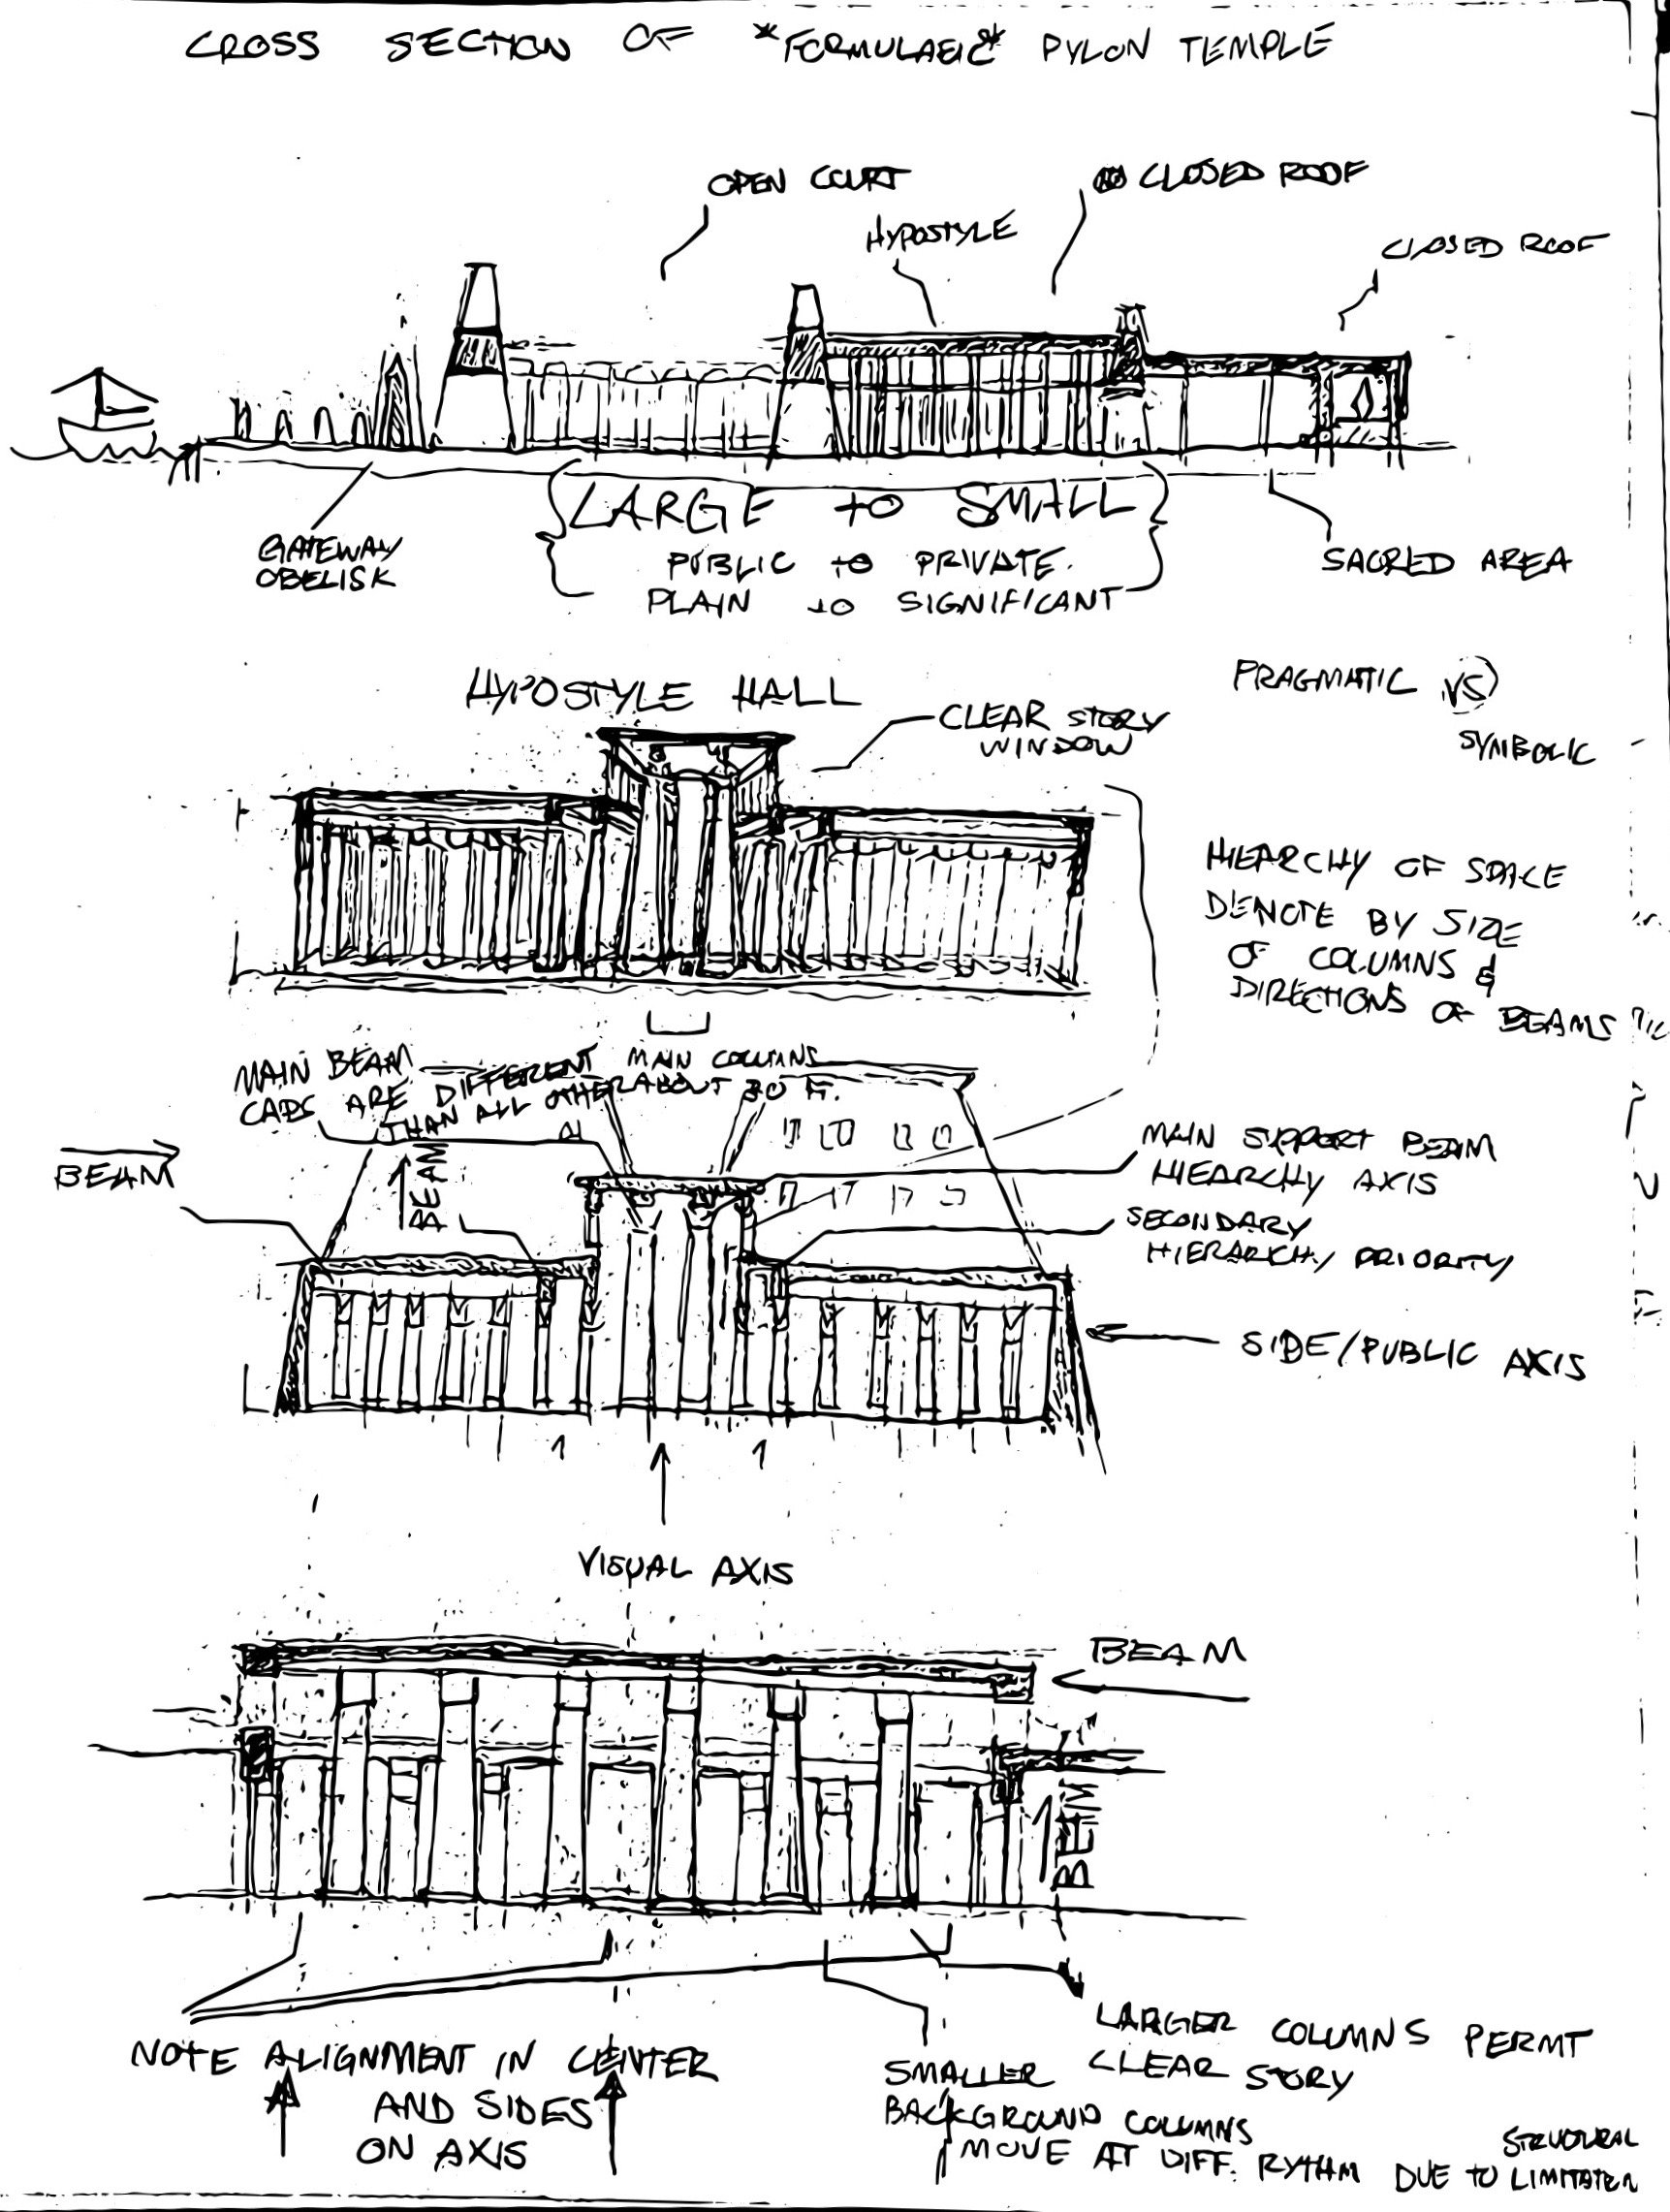 CROSS SECTION OF *FORMULAEIC* PYLON TEMPLE
OPEN COURT
CLOSED ROOF
HYPOSTYLE
CLOSED ROOF
GATEWAY
OBELISK
LARGE to SMALL
PUBLIC to PRIVATE
PLAIN to SIGNIFICANT
SACRED AREA
HYPOSTYLE HALL
CLEAR STORY
WINDOW
PRAGMATIC VS
SYMBOLIC
HIEARCHY OF SPACE
DENOTE BY SIZE
OF COLUMNS &
DIRECTIONS OF BEAMS
MAIN BEAM
CAPS ARE DIFFERENT
THAN ALL OTHER
MAIN COLUMNS
ABOUT 30 FT.
BEAM
BEAM
MAIN SUPPORT BEAM
HIEARCHY AXIS
SECONDARY
HIERARCHY PRIORITY
SIDE/PUBLIC AXIS
VISUAL AXIS
BEAM
BEAM
NOTE ALIGNMENT IN CENTER
AND SIDES
ON AXIS
LARGER COLUMNS PERMT
CLEAR STORY
SMALLER
BACKGROUND COLUMNS
MOVE AT DIFF. RYTHM DUE TO STRUCTURAL
LIMITATION